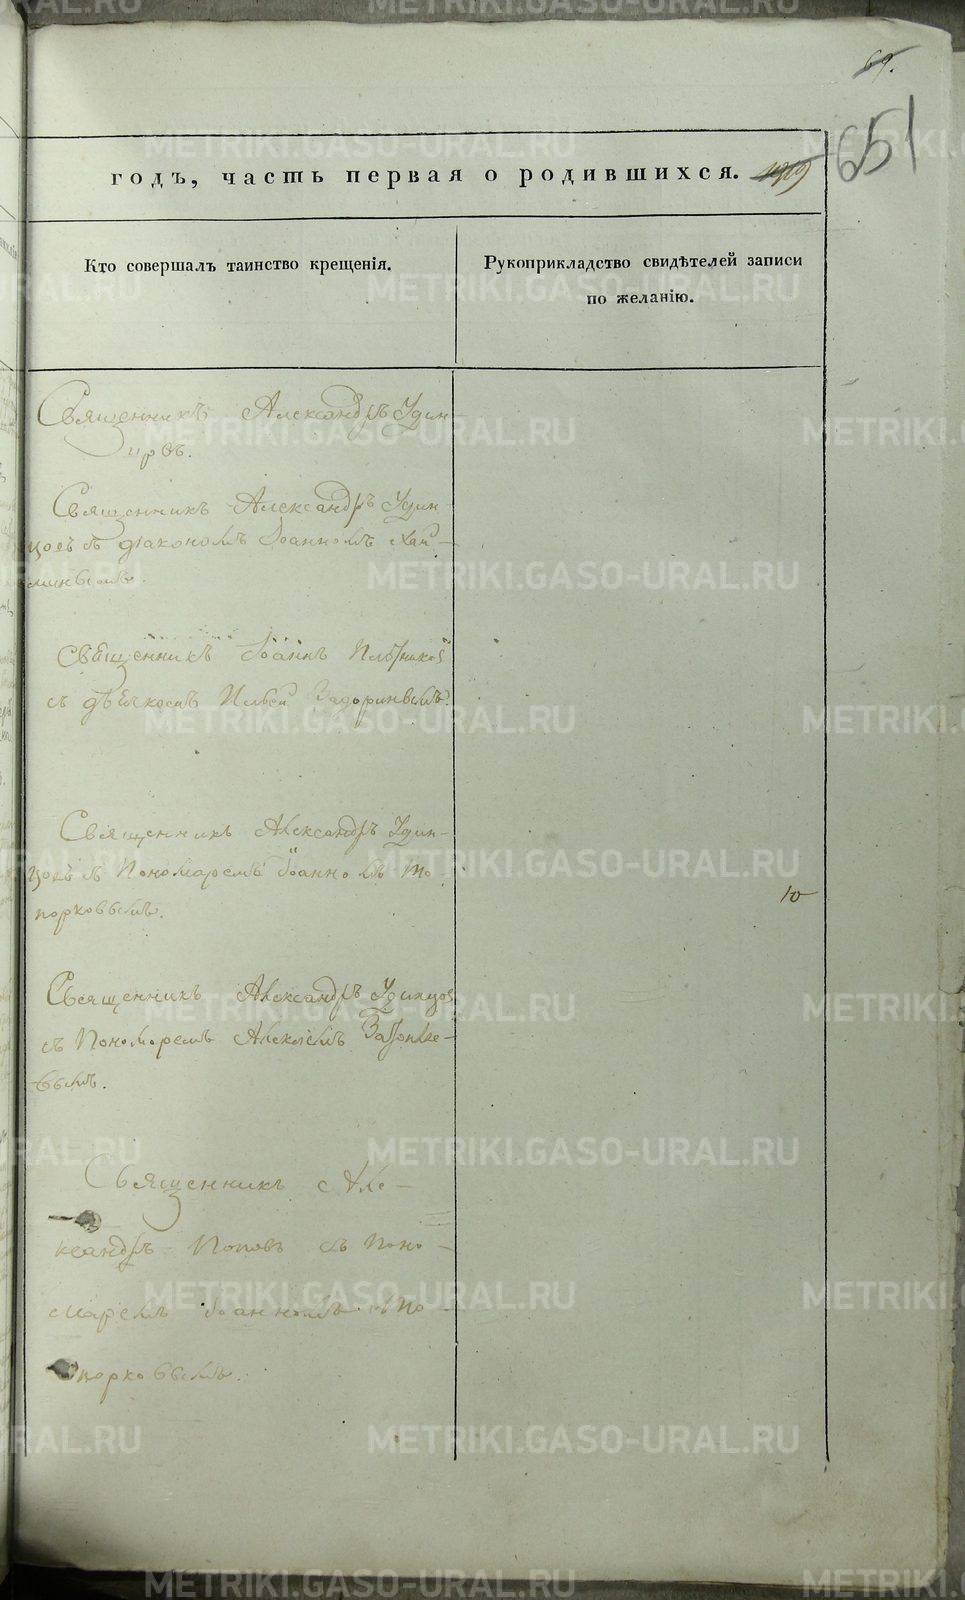 69.
651
годъ, часть первая о родившихся.
Кто совершалъ таинство крещенія.
Рукоприкладство свидѣтелей записи
по желанію.
Священникъ Александръ Удин-
цовъ.
Священникъ Александръ Удин-
цовъ съ діакономъ Іоанномъ
Священникъ Іоаннъ Плотников
съ дьячкомъ Ильей Задоринымъ.
Священникъ Александръ Удин-
цовъ съ Пономаремъ Іоанномъ То-
порковымъ.
10
Священникъ Александръ Удинцов
съ Пономаремъ Алексѣемъ
вымъ.
Священникъ Але-
ксандръ Поповъ съ Поно-
маремъ Іоанномъ То-
порковымъ.
METRIKI.GASO-URAL.RU